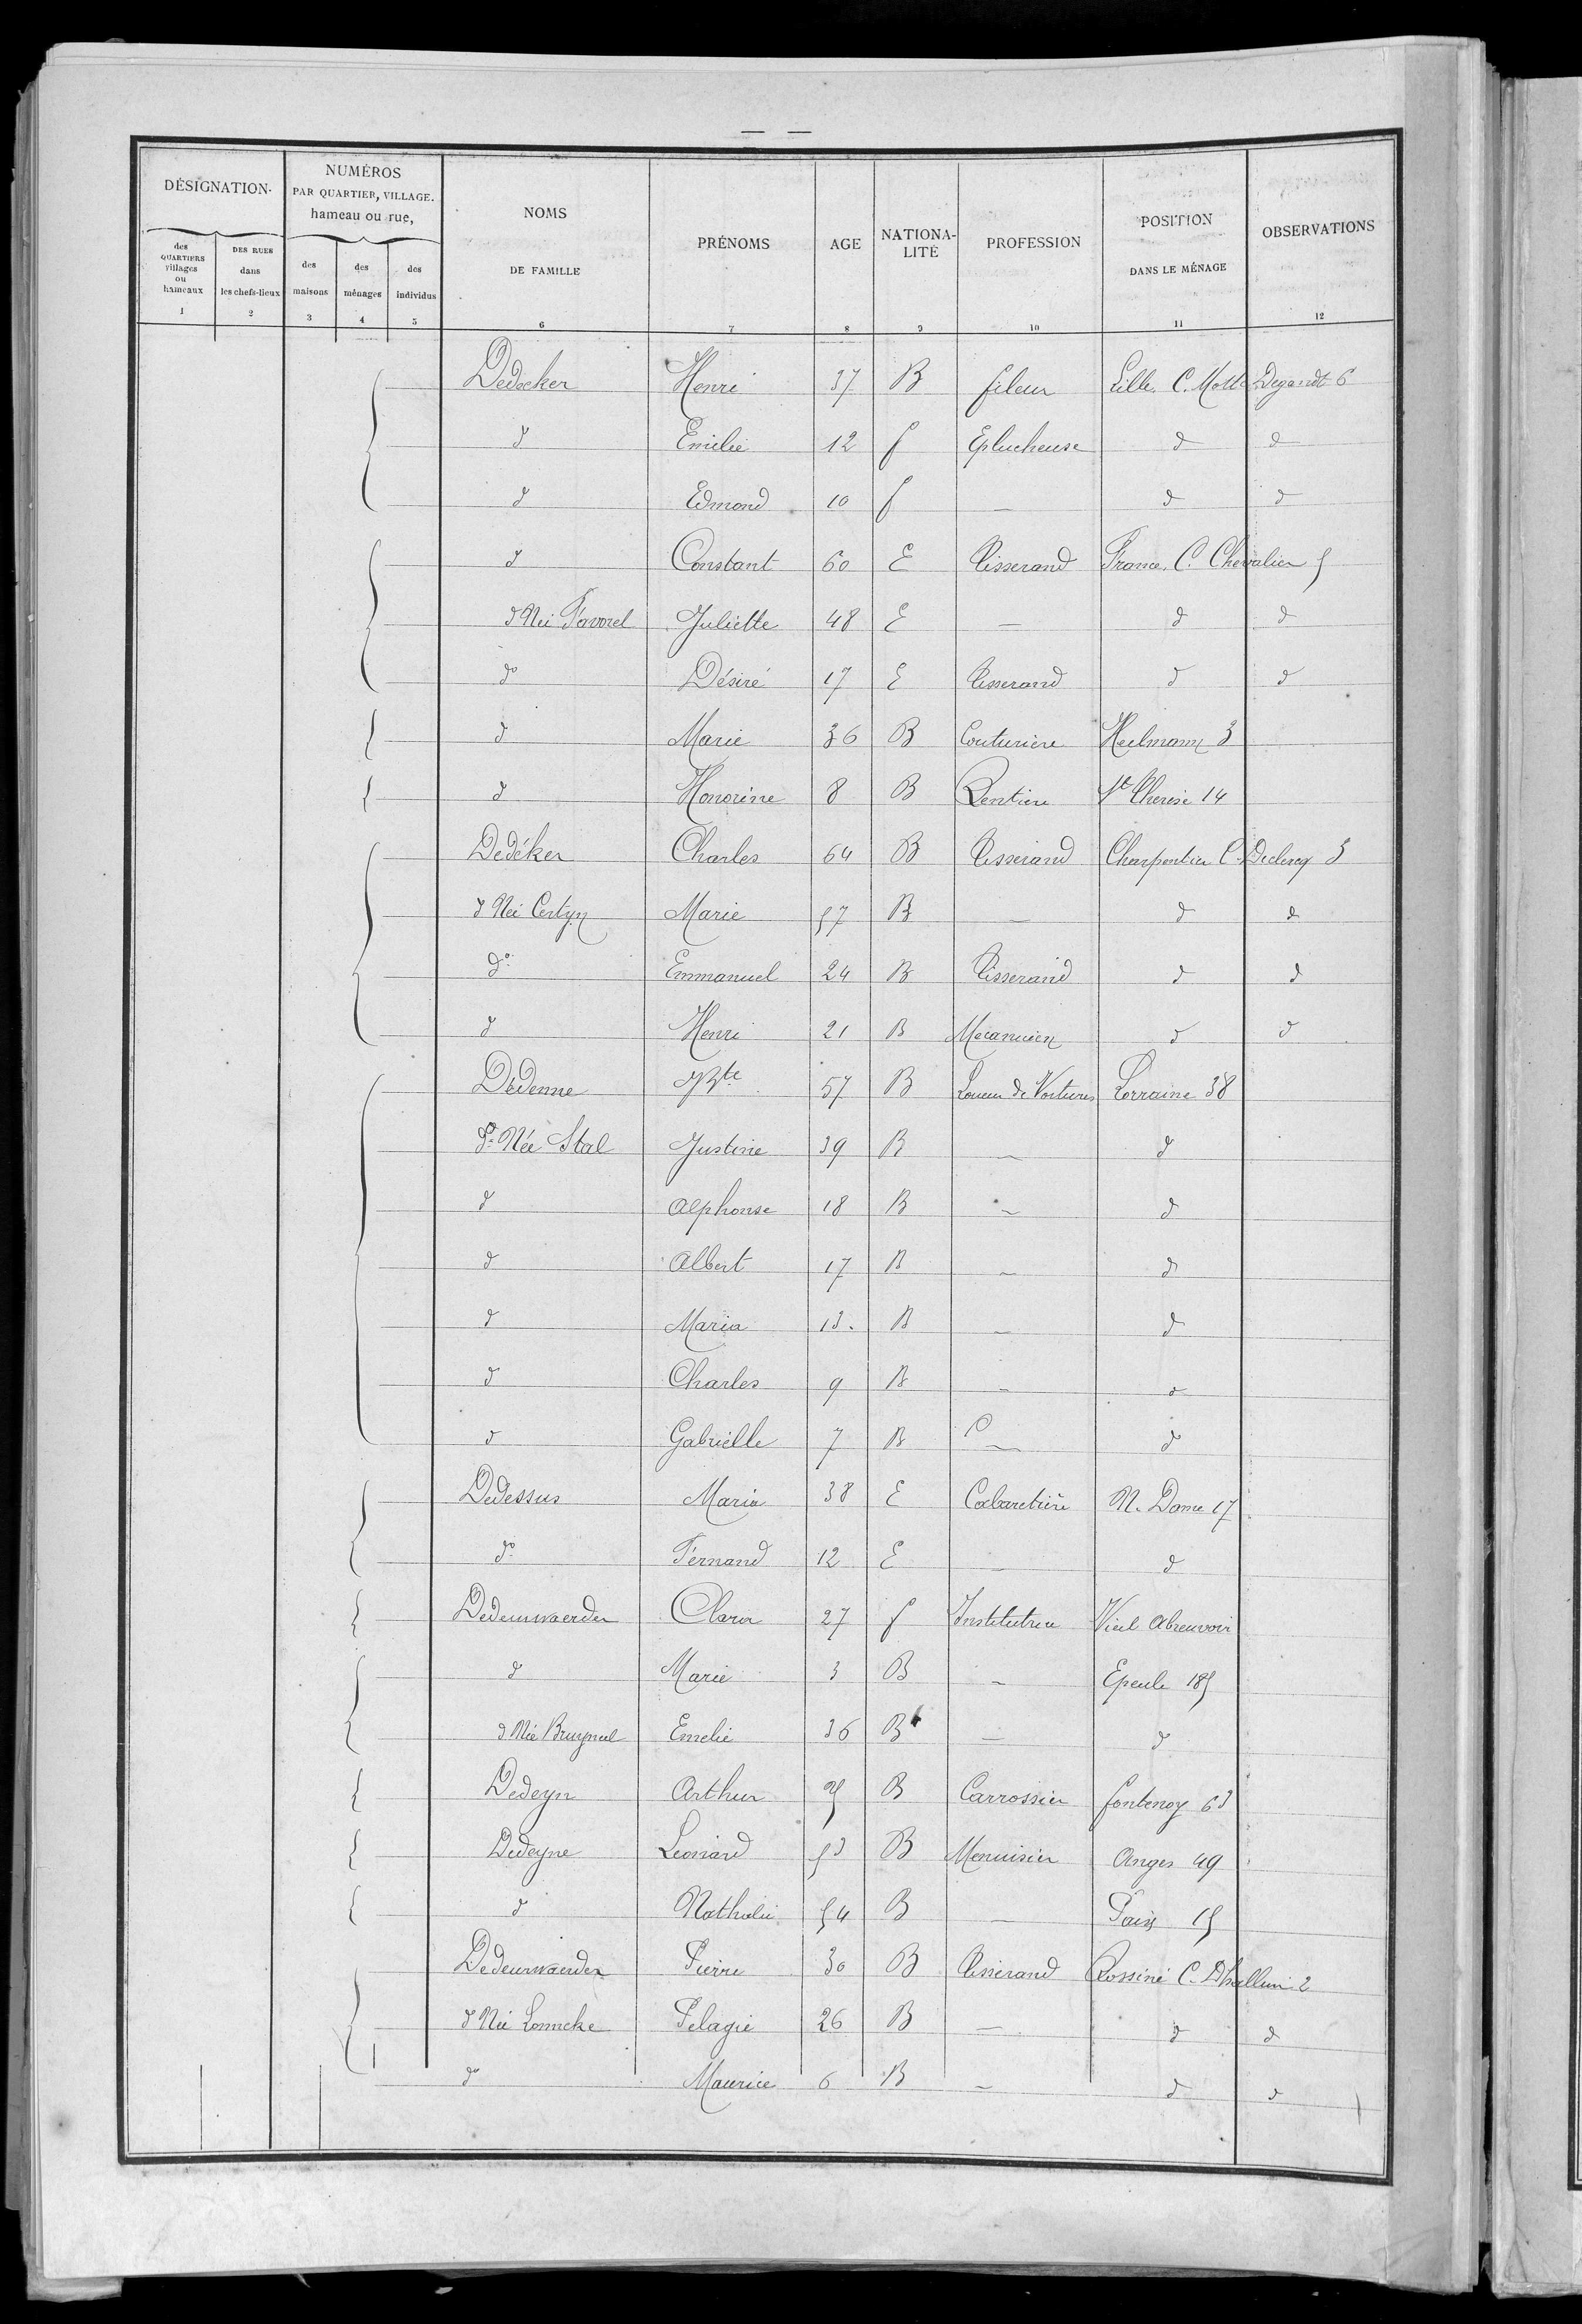 DÉSIGNATION.
NUMÉROS
PAR QUARTIER, VILLAGE.
hameau ou rue,
NOMS
DE FAMILLE
PRÉNOMS
AGE
NATIONA-
LITÉ
PROFESSION
POSITION
DANS LE MÉNAGE
OBSERVATIONS
des
QUARTIERS
villages
ou
hameaux
DES RUES
dans
les chefs-lieux
des
maisons
des
ménages
des
individus
1 2 3 4 5 6 7 8 9 10 11 12
Dedecker Henri 37 B fileur Lille. C. Motte Degandt 6
d Emilie 12 f Eplucheuse d d
d Edmond 10 f — d d
d Constant 60 E Tisserand France. C. Chevalier 5
d Née Favorel Juliette 48 E — d d
do Désiré 17 E Tisserand d d
d Marie 36 B Couturière Heilmann 3
d Honorine 8 B Rentière Ste Therese 14
Dedéker Charles 64 B Tisserand Charpentier C. Declercq 3
d Née Marie 57 B — d d
do Emmanuel 24 B Tisserand d d
d Henri 21 B Mecanicien d d
Dedenne JBte 57 B Loueur de Voitures Lorraine 38
do Née Stal Justine 39 B — d
d Alphonse 18 B — d
d Albert 17 B — d
d Maria 13. B — d
d Charles 9 B — d
d Gabrielle 7 B — d
Dedessus Maria 38 E Cabaretière N. Dame 17
do Fernand 12 E — d
Dedeurwaerder Clara 27 f Institutrice Vieil Abreuvoir
d Marie 3 B — Epeule 185
d Née Bruyneel Emelie 36 B — d
Dedeyn Arthur B Carrossier fontenoy 63
Dedeyne Leonard 53 B Menuisier Anges 49
d Nathalie 54 B — 15
Dedeurwaerder Pierre 30 B Tisserand Rossini C. Dhalluin 2
d Née Lonncke Pelagie 26 B — d d
do Maurice 6 B — d d